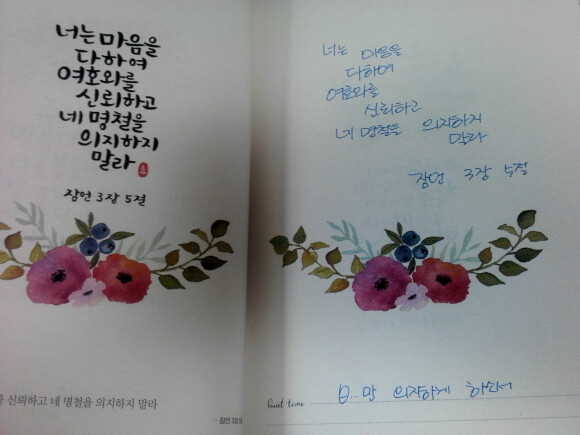 너는 마음을
다하여
여호와를
신뢰하고
네 명철을
의지하지
말라
잠언 3장 5절
신뢰하고 네 명철을 의지하지 말라
잠언
너는 마음을
다하여
여호와를
신뢰하고
네 명철을 의지하지
말라
잠언 3장 5절
Quiet time
만 의지하게 하소서